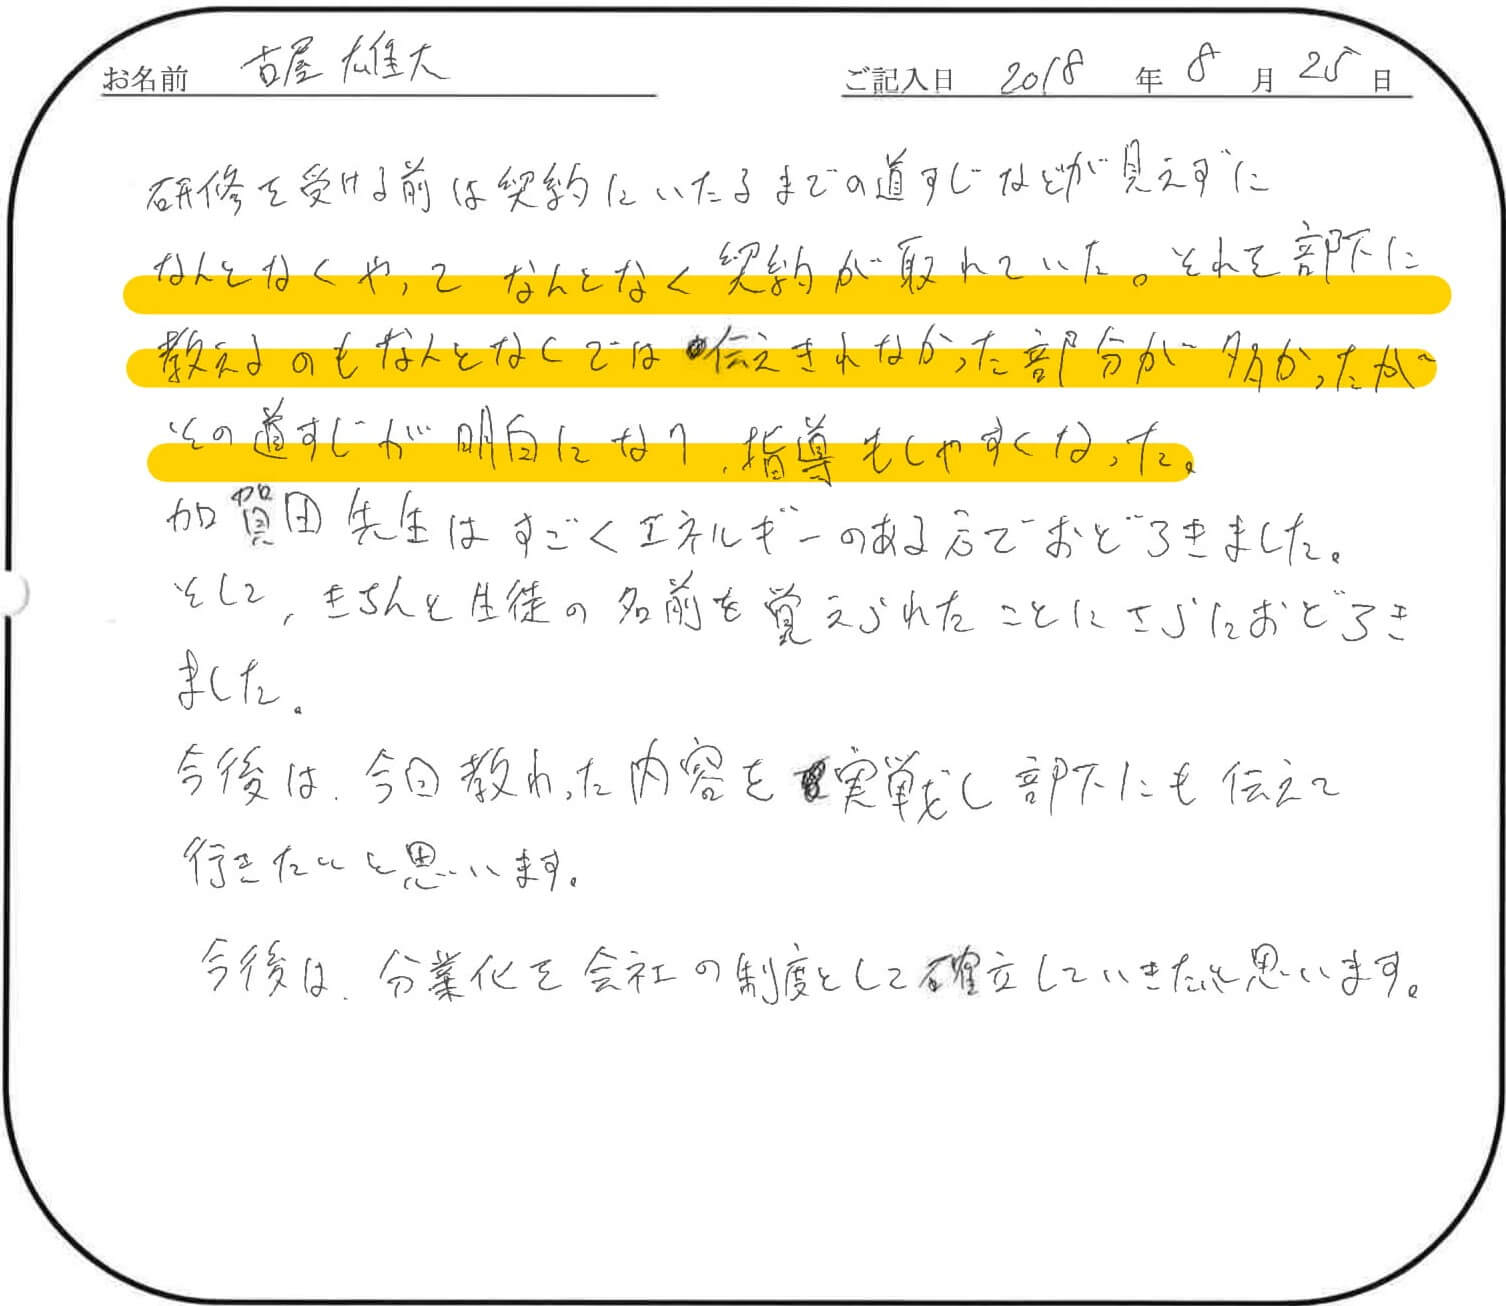 お名前 古屋 雄大 ご記入日 2018 年 8 月 25 日
研修を受ける前は契約にいたるまでの道すじなどが見えずに
なんとなくやって なんとなく契約が取れていた。それを部下に
教えるのもなんとなくでは伝えきれなかった部分が多かったが
その道すじが明白になり、指導もしやすくなった。
加賀田先生はすごくエネルギーのある方でおどろきました。
そして、きちんと生徒の名前を覚えられたことにさらにおどろき
ました。
今後は、今回教わった内容を実戦し部下にも伝えて
行きたいと思います。
今後は、分業化を会社の制度として確立していきたいと思います。